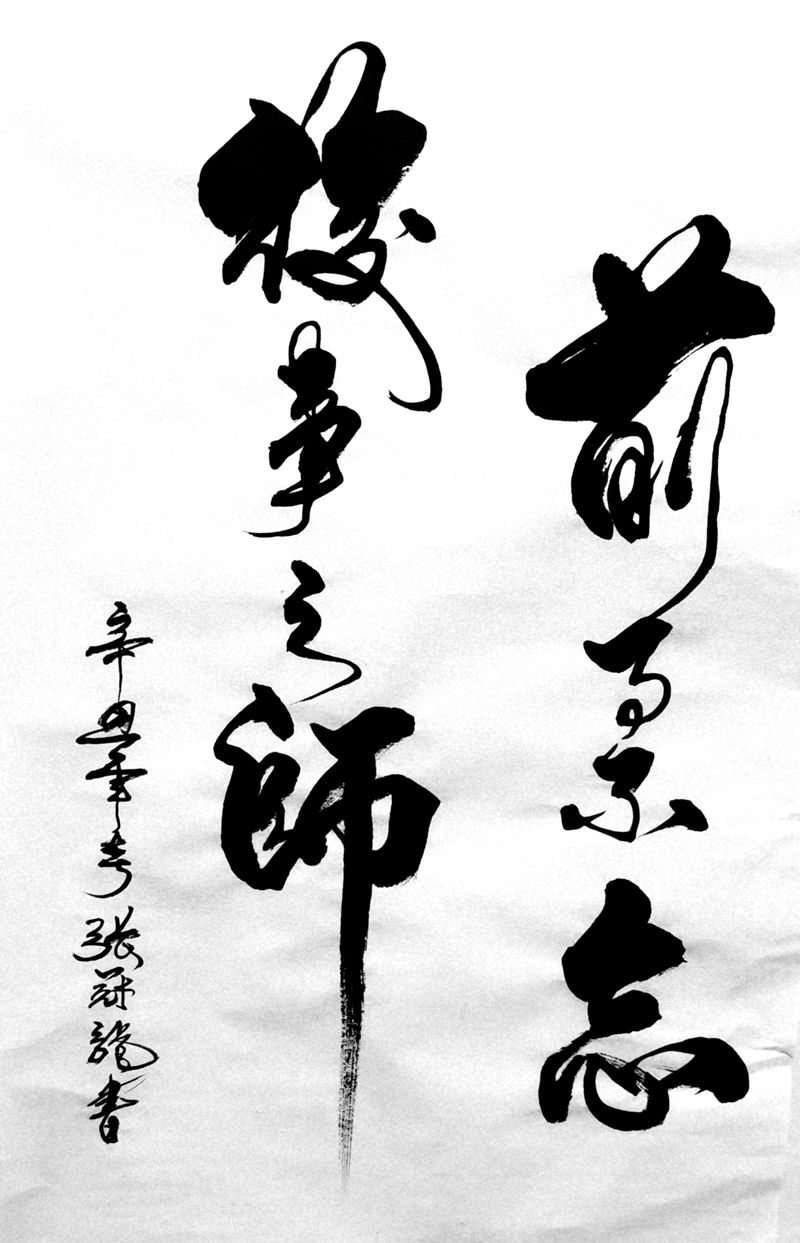 前事不忘
後事之師
辛丑年春張冠龍書